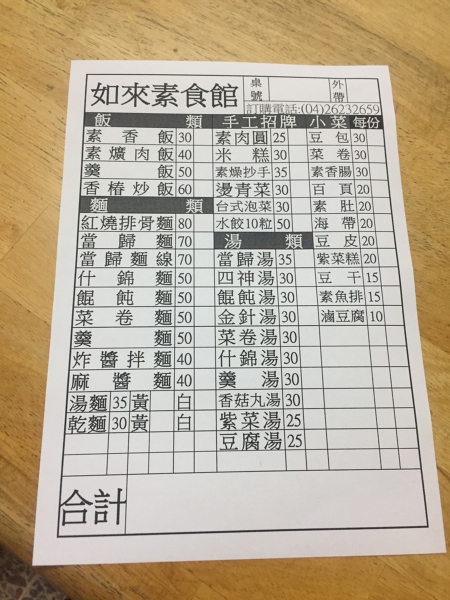 如來素食館 桌號 外帶
訂購電話:(04)26232659
飯類 手工招牌 小菜 每份
素香飯 30 素肉圓 25 豆包 30
素爌肉飯 40 米糕 30 菜卷 30
羹飯 50 素燥抄手 35 素香腸 30
香椿炒飯 60 燙青菜 30 百頁 20
麵類 台式泡菜 30 素肚 20
紅燒排骨麵 80 水餃10粒 50 海帶 20
當歸麵 70 湯類 豆皮 20
當歸麵線 70 當歸湯 35 紫菜糕 20
什錦麵 50 四神湯 30 豆干 15
餛飩麵 50 餛飩湯 30 素魚排 15
菜卷麵 50 金針湯 30 滷豆腐 10
羹麵 50 菜卷湯 30
炸醬拌麵 40 什錦湯 30
麻醬麵 40 羹湯 30
湯麵 35 黃 白 香菇丸湯 30
乾麵 30 黃 白 紫菜湯 25
豆腐湯 25
合計